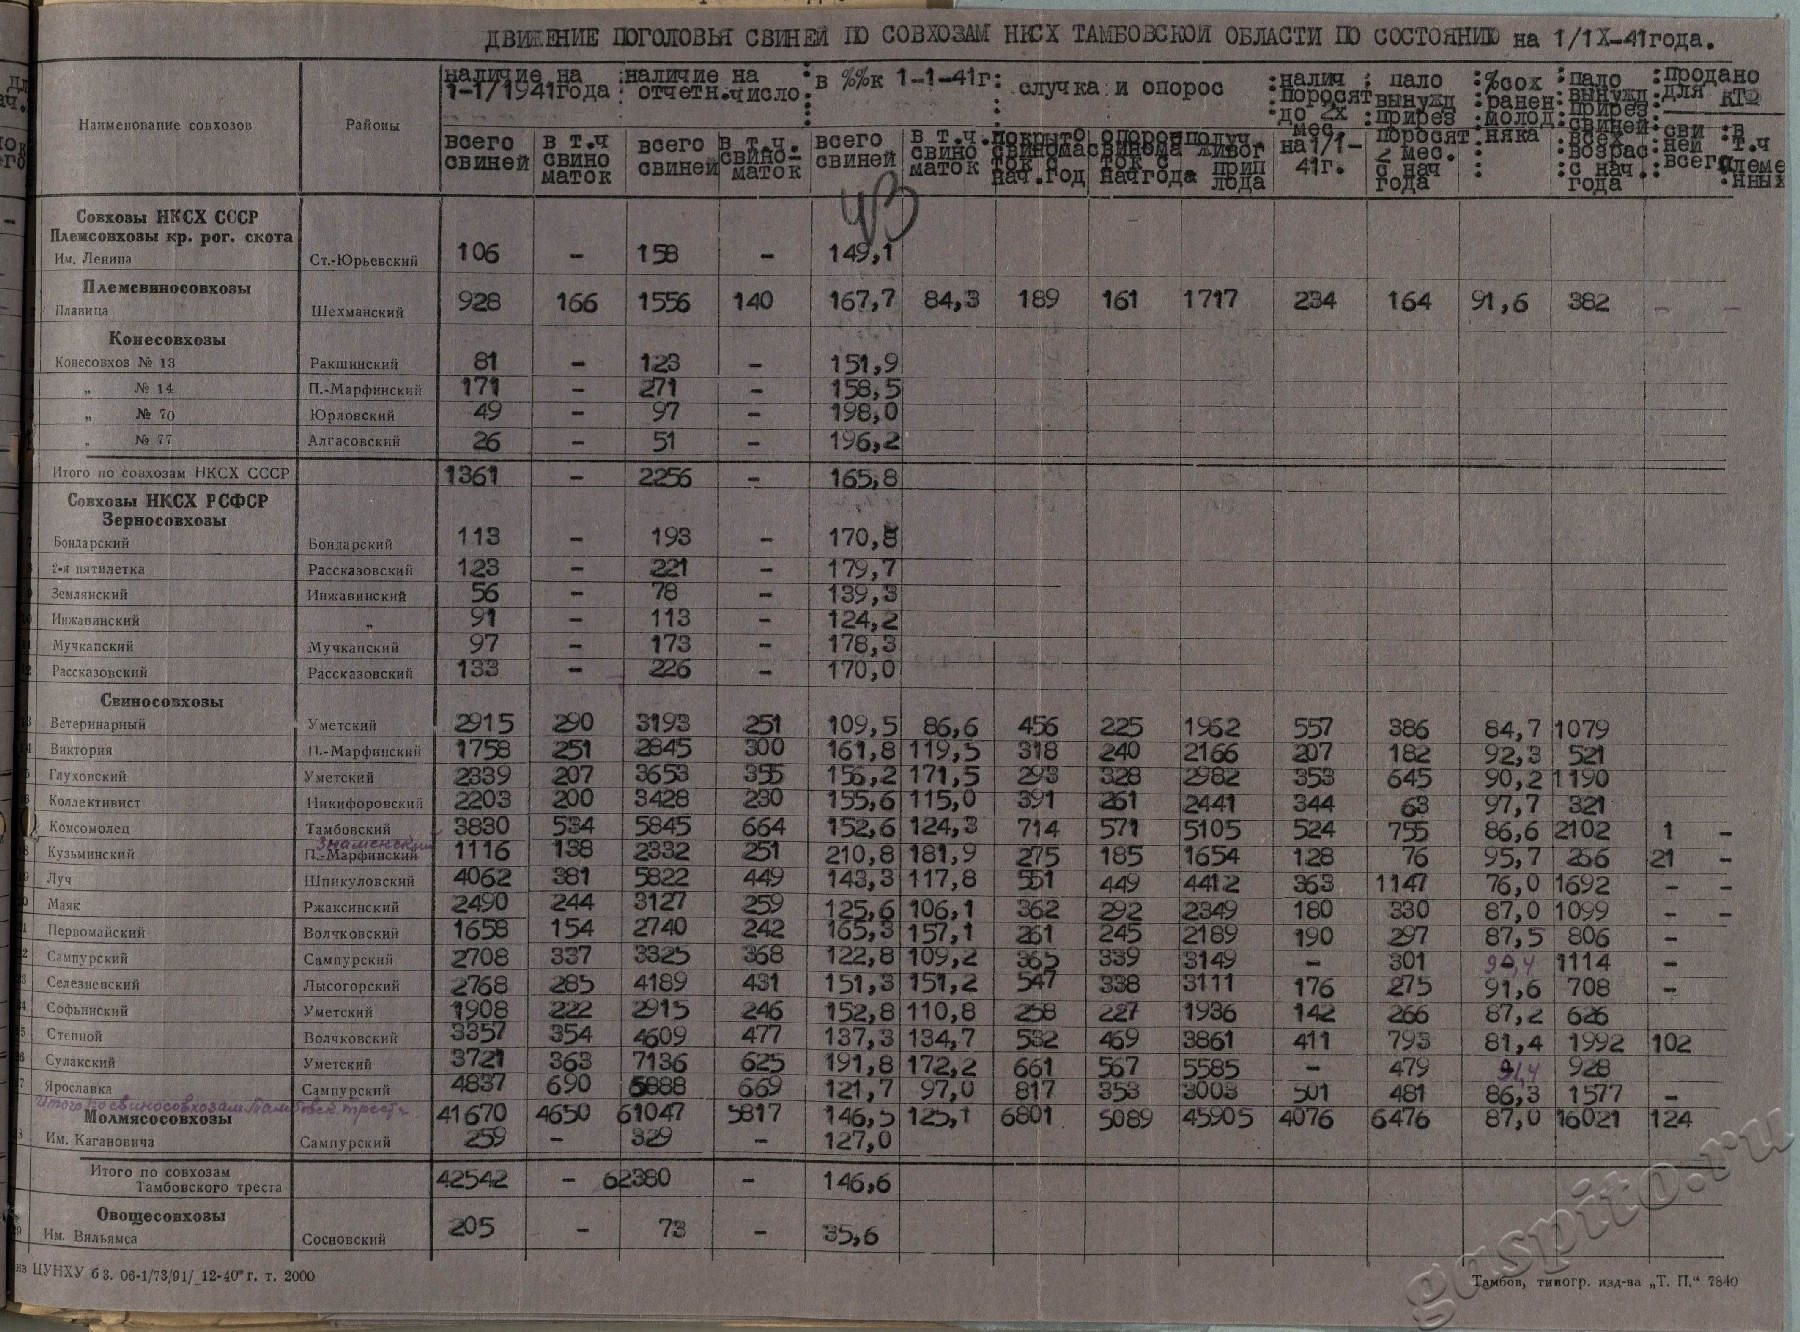 ДВИЖЕНИЕ ПОГОЛОВЬЯ СВИНЕЙ ПО СОВХОЗАМ НКСХ ТАМБОВСКОЙ ОБЛАСТИ ПО СОСТОЯНИЮ на 1/1X-41года.
Наименование совхозов Районы наличие на 1-1/1941года наличие на отчетн.число в %%к 1-1-41г: случка и опорос налич поросят до 2х мес. на 1/1-41г. пало вынужд прирез поросят 2 мес. с нач года %сох ранен молод няка пало вынужд прирез свиней всех возрас с нач. года продано для КТФ
всего свиней в т.ч свино маток всего свиней в т.ч. свино-маток всего свиней в т.ч. свино маток покрыто свинома ток с нач.год опорос свинома ток с начгода получ живог прип лода сви ней всего в т.ч племе нных
43
Совхозы НКСХ СССР
Племсовхозы кр. рог. скота
Им. Ленина Ст.-Юрьевский 106 – 158 – 149,1
Племсвиносовхозы
Плавица Шехманский 928 166 1556 140 167,7 84,3 189 161 1717 234 164 91,6 382 – –
Конесовхозы
Конесовхоз № 13 Ракшинский 81 – 123 – 151,9
„ № 14 П.-Марфинский 171 – 271 – 158,5
„ № 70 Юрловский 49 – 97 – 198,0
„ № 77 Алгасовский 26 – 51 – 196,2
Итого по совхозам НКСХ СССР 1361 – 2256 – 165,8
Совхозы НКСХ РСФСР
Зерносовхозы
Бондарский Бондарский 113 – 193 – 170,8
2-я пятилетка Рассказовский 123 – 221 – 179,7
Землянский Инжавинский 56 – 78 – 139,3
Инжавинский „ 91 – 113 – 124,2
Мучкапский Мучкапский 97 – 173 – 178,3
Рассказовский Рассказовский 133 – 226 – 170,0
Свиносовхозы
Ветеринарный Уметский 2915 290 3193 251 109,5 86,6 456 225 1962 557 386 84,7 1079
Виктория П.-Марфинский 1758 251 2845 300 161,8 119,5 318 240 2166 207 182 92,3 521
Глуховский Уметский 2339 207 3653 355 156,2 171,5 293 328 2982 353 645 90,2 1190
Коллективист Никифоровский 2203 200 3428 230 155,6 115,0 391 261 2441 344 63 97,7 321
Комсомолец Тамбовский 3830 534 5845 664 152,6 124,3 714 571 5105 524 755 86,6 2102 1 –
Знаменский
Кузьминский П.-Марфинский 1116 138 2332 251 210,8 181,9 275 185 1654 128 76 95,7 266 21 –
Луч Шпикуловский 4062 381 5822 449 143,3 117,8 551 449 4412 363 1147 76,0 1692 – –
Маяк Ржаксинский 2490 244 3127 259 125,6 106,1 362 292 2349 180 330 87,0 1099 – –
Первомайский Волчковский 1658 154 2740 242 165,3 157,1 261 245 2189 190 297 87,5 806 –
Сампурский Сампурский 2708 337 3325 368 122,8 109,2 365 339 3149 – 301 90,4 1114 –
Селезневский Лысогорский 2768 285 4189 431 151,3 151,2 547 338 3111 176 275 91,6 708 –
Софьинский Уметский 1908 222 2915 246 152,8 110,8 258 227 1936 142 266 87,2 626
Степной Волчковский 3357 354 4609 477 137,3 134,7 532 469 3861 411 793 81,4 1992 102
Сулакский Уметский 3721 363 7136 625 191,8 172,2 661 567 5585 – 479 91,4 928
Ярославка Сампурский 4837 690 5888 669 121,7 97,0 817 353 3003 501 481 86,3 1577 –
Итого по свиносовхозам Тамбовск. трест 41670 4650 61047 5817 146,5 125,1 6801 5089 45905 4076 6476 87,0 16021 124
Молмясосовхозы
Им. Кагановича Сампурский 259 – 329 – 127,0
Итого по совхозам Тамбовского треста 42542 – 62380 – 146,6
Овощесовхозы
Им. Вильямса Сосновский 205 – 73 – 35,6
из ЦУНХУ б 3. 06-1/73/91/_12-40 г. т. 2000
Тамбов, типогр. изд-ва „Т. П.“ 7840
gaspito.ru